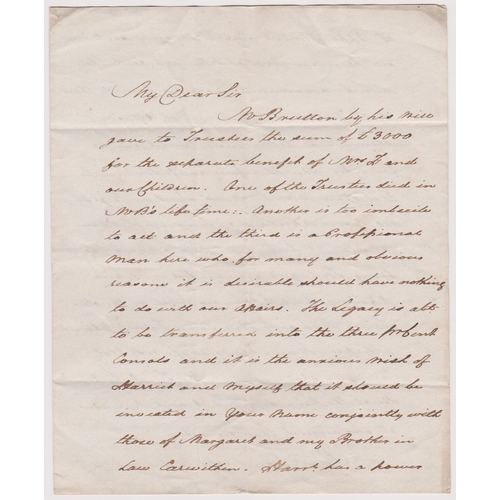 My Dear Sir
Mr Brutton by his will
gave to Trustees the sum of £3000
for the separate benefit of Mrs L and
our Children. One of the Trustees died in
Mr B's life time:. Another is too imbecile
to act and the third is a Professional
Man here who for many and obvious
reasons it is desirable should have nothing
to do with our affairs. The Legacy is abt
to be transferred into the three pr Cent
Consols and it is the anxious wish of
Harriet and myself that it should be
invested in Your Name conjointly with
those of Margaret and my Brother in
Law Carwithen. Harrt. has a power